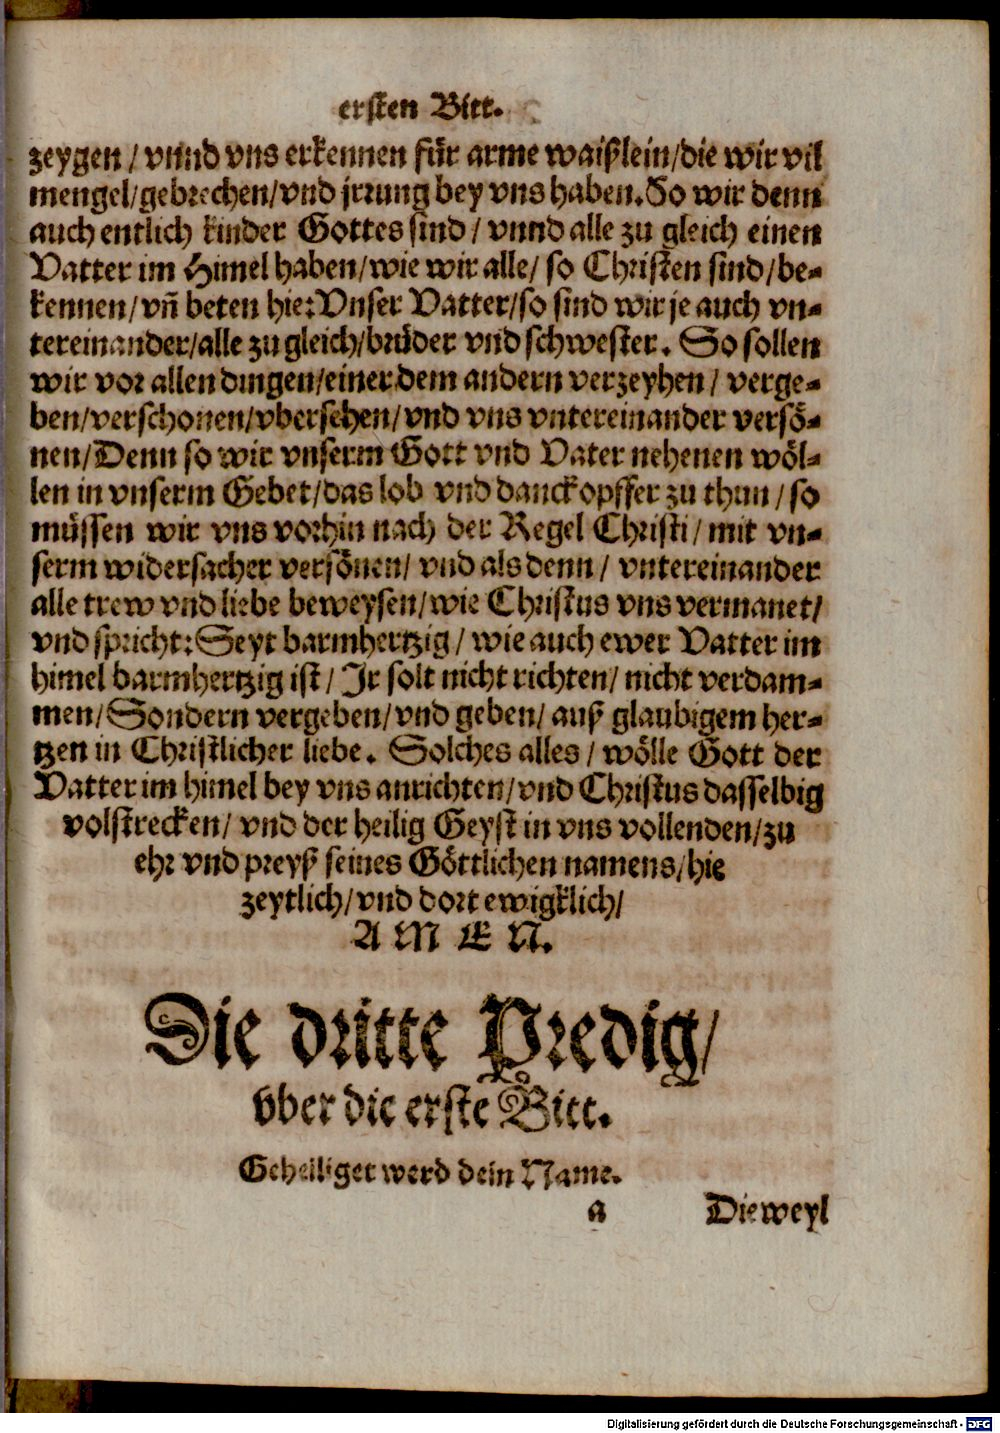 ersten Bitt.
zeygen / vnnd vns erkennen für arme waißlein/die wir vil
mengel/gebrechen/vnd jrrung bey vns haben.So wir denn
auch entlich kinder Gottes sind / vnnd alle zu gleich einen
Vatter im Himel haben/wie wir alle/ so Christen sind/be-
kennen/vñ beten hie:Vnser Vatter/so sind wir je auch vn-
tereinander/alle zu gleich/brüder vnd schwester. So sollen
wir vor allen dingen/einer dem andern verzeyhen/ verge-
ben/verschonen/vbersehen/vnd vns vntereinander versö-
nen/Denn so wir vnserm Gott vnd Vater nehenen wöl-
len in vnserm Gebet/das lob vnd danckopffer zu thun/so
müssen wir vns vorhin nach der Regel Christi/ mit vn-
serm widersacher versönen/ vnd als denn / vntereinander
alle trew vnd liebe beweysen/wie Christus vns vermanet/
vnd spricht:Seyt barmhertzig/ wie auch ewer Vatter im
himel barmhertzig ist/ Jr solt nicht richten/ nicht verdam-
men/Sondern vergeben/vnd geben/ auß glaubigem her-
tzen in Christlicher liebe. Solches alles / wölle Gott der
Vatter im himel bey vns anrichten/vnd Christus dasselbig
volstrecken/ vnd der heilig Geyst in vns vollenden/zu
ehr vnd preyß seines Göttlichen namens/hie
zeytlich/vnd dort ewigklich/
A M E N.
Die dritte Predig/
vber die erste Bitt.
Geheiliget werd dein Name.
a Dieweyl
Digitalisierung gefördert durch die Deutsche Forschungsgemeinschaft - DFG